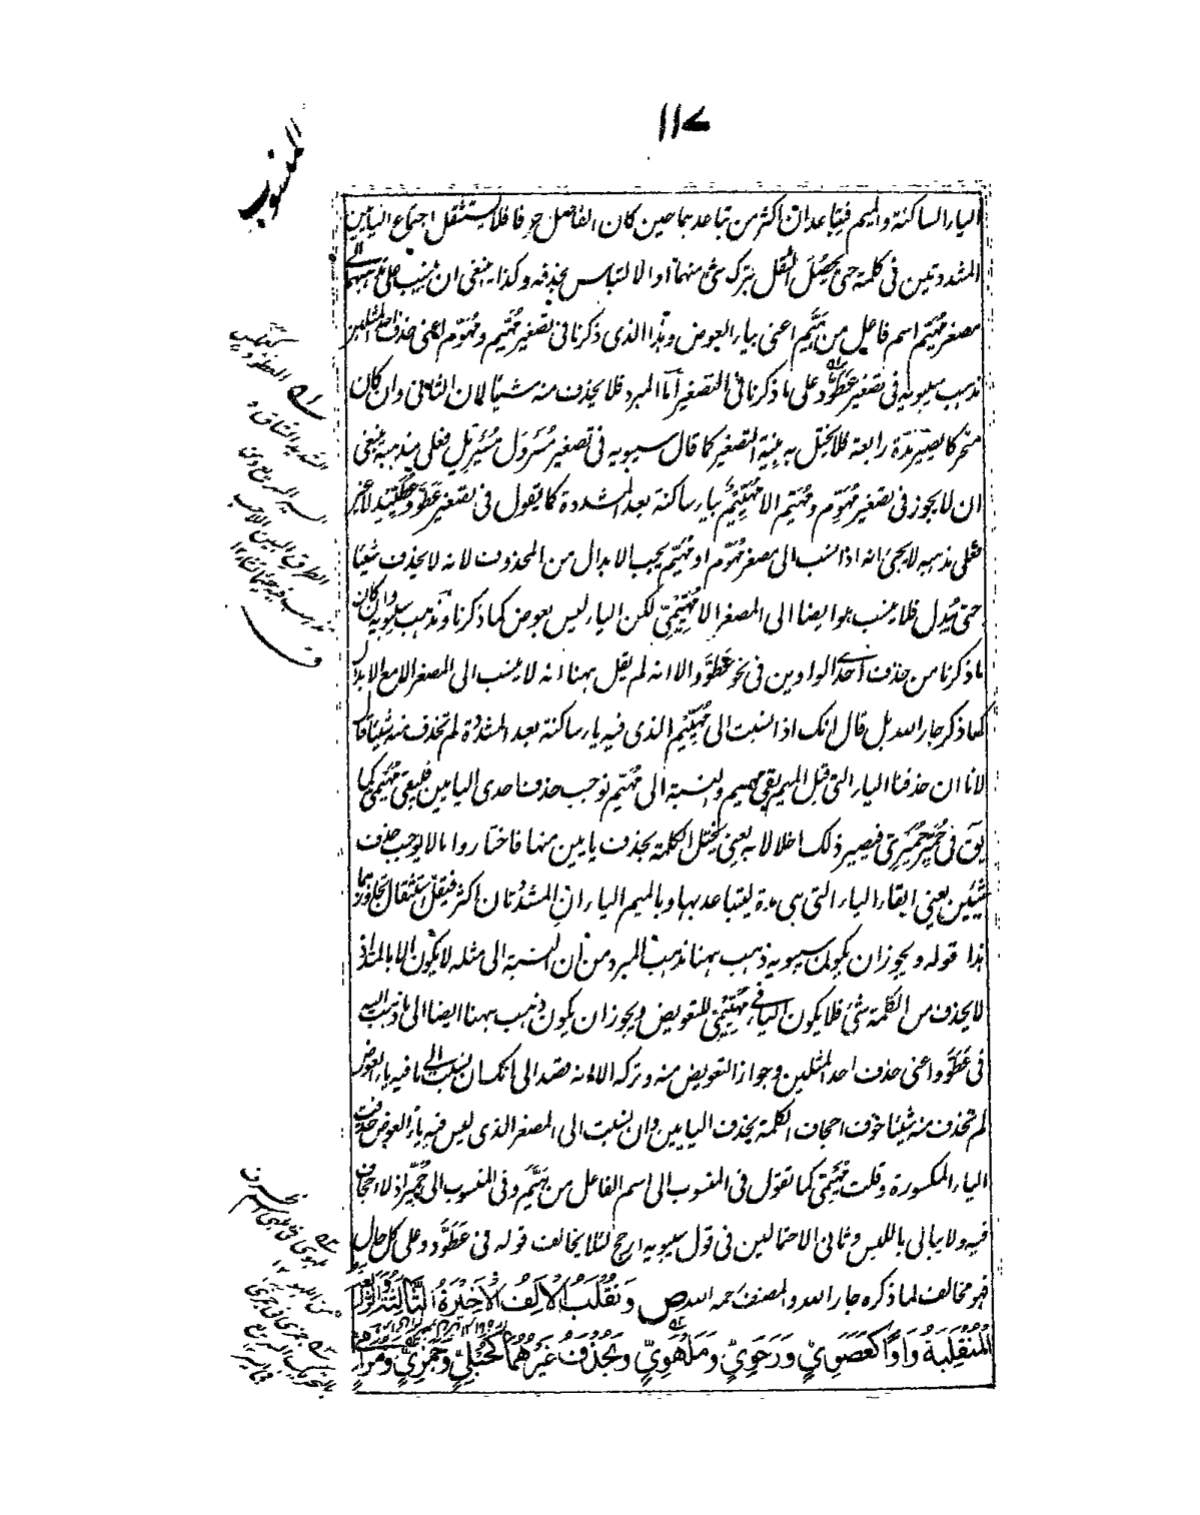 ١١٧
المنسوب
الياء الساكنة والميم فيتباعدان اكثر من تباعدهما حين كان الفاصل حرفا فلا يستثقل اجتماع اليائين
المشددتين فى كلمة حتى يحصل الثقل بترك شئ منهما او الالتباس بحذفه وكذا ينبغى ان ينسب على مذهبهما الى
مصغر مهيم اسم فاعل من هيّم اعنى بياء العوض وهذا الذى ذكرنا فى تصغير مهيّم ومهوّم اعنى حذف احد المثلين
مذهب سيبويه فى تصغير عطوّد على ما ذكرنا فى التصغير اما المبرد فلا يحذف منه شيئا لان الثانى وان كان
متحركا يصير مدة رابعة فلا يختل به بنية التصغير كما قال سيبويه فى تصغير مسرول مسيريل فعلى مذهبه ينبغى
ان لا يجوز فى تصغير مهوّم ومهيّم الا مهيّيم بياء ساكنة بعد المشددة كما يقول فى تصغير عطوّد عطيّيد لا غير
فعلى مذهبه لا يجئ انه اذا نسب الى مصغر مهوّم او مهيّم يجب الابدال من المحذوف لانه لا يحذف شيئا
حتى يبدل فلا ينسب هو ايضا الى المصغر الا مهيّيمىّ لكن الياء ليس بعوض كما ذكرنا ومذهب سيبويه وان كان
ما ذكرنا من حذف احدى الواوين فى نحو عطوّد الا انه لم يقل ههنا انه لا ينسب الى المصغر الا مع الابدال
كما ذكر جار الله بل قال انك اذا نسبت الى مهيّيم الذى فيه ياء ساكنة بعد المشددة لم تحذف منه شيئا قال
لانا ان حذفنا الياء التى قبل الميم بقى مهيم والنسبة الى مهيّم توجب حذف احدى اليائين فيبقى مهيمىّ كما
يق فى حميّر حميرىّ فيصير ذلك اخلالا به يعنى يختل الكلمة بحذف يائين منها فاختاروا ما لا يوجب حذف
شيئين يعنى ابقاء الياء التى هى مدة ليتباعد بها وبالميم الياءان المشددتان اكثر فيقل استثقال تجاورهما
هذا قوله ويجوز ان يكون سيبويه ذهب ههنا مذهب المبرد من ان النسبة الى مثله لا يكون الا بالمد اذ
لا يحذف من الكلمة شئ فلا يكون الياء فى مهيّيمىّ للتعويض ويجوز ان يكون ذهب ههنا ايضا الى ما ذهب اليه
فى عطوّد اعنى حذف احد المثلين وجواز التعويض منه وتركه الا انه قصد الى انك ان نسبت الى ما فيه ياء العوض
لم تحذف منه شيئا خوف اجحاف الكلمة بحذف اليائين وان نسبت الى المصغر الذى ليس فيه ياء العوض حذفت
الياء المكسورة وقلت مهيمىّ كما تقول فى المنسوب الى اسم الفاعل من هيّم وفى المنسوب الى حميّر اذ لا اجحاف
فيه ولا يبالى باللبس وثانى الاحتمالين فى قول سيبويه ارجح لئلا يخالف قوله فى عطوّد وعلى كل حال
فهو مخالف لما ذكره جار الله والمصنف رحمه الله ص وَتُقْلَبُ الْاَلِفُ الْاَخِيْرَةُ الثَّالِثَةُ وَالرَّابِعَةُ
الْمُنْقَلِبَةُ وَاوًا كَعَصَوِيٍّ وَرَحَوِيٍّ وَمَلْهَوِيٍّ وَيُحْذَفُ غَيْرُهُمَا كَحُبْلِيٍّ وَجَمَزِيٍّ وَمُرَامِيٍّ